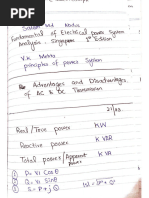 Saleem Md Nadus
Fundamental of Electrical power System
Analysis, Singapore 1st Edition
V.K Mehta
principles of power System
Advantages and Disadvantages
of AC & DC Transmission
21/03
Real/True power KW
Reactive power KVAR
Total power/Apparent power KVA
① P= VI Cosθ
②
③ S= P+j